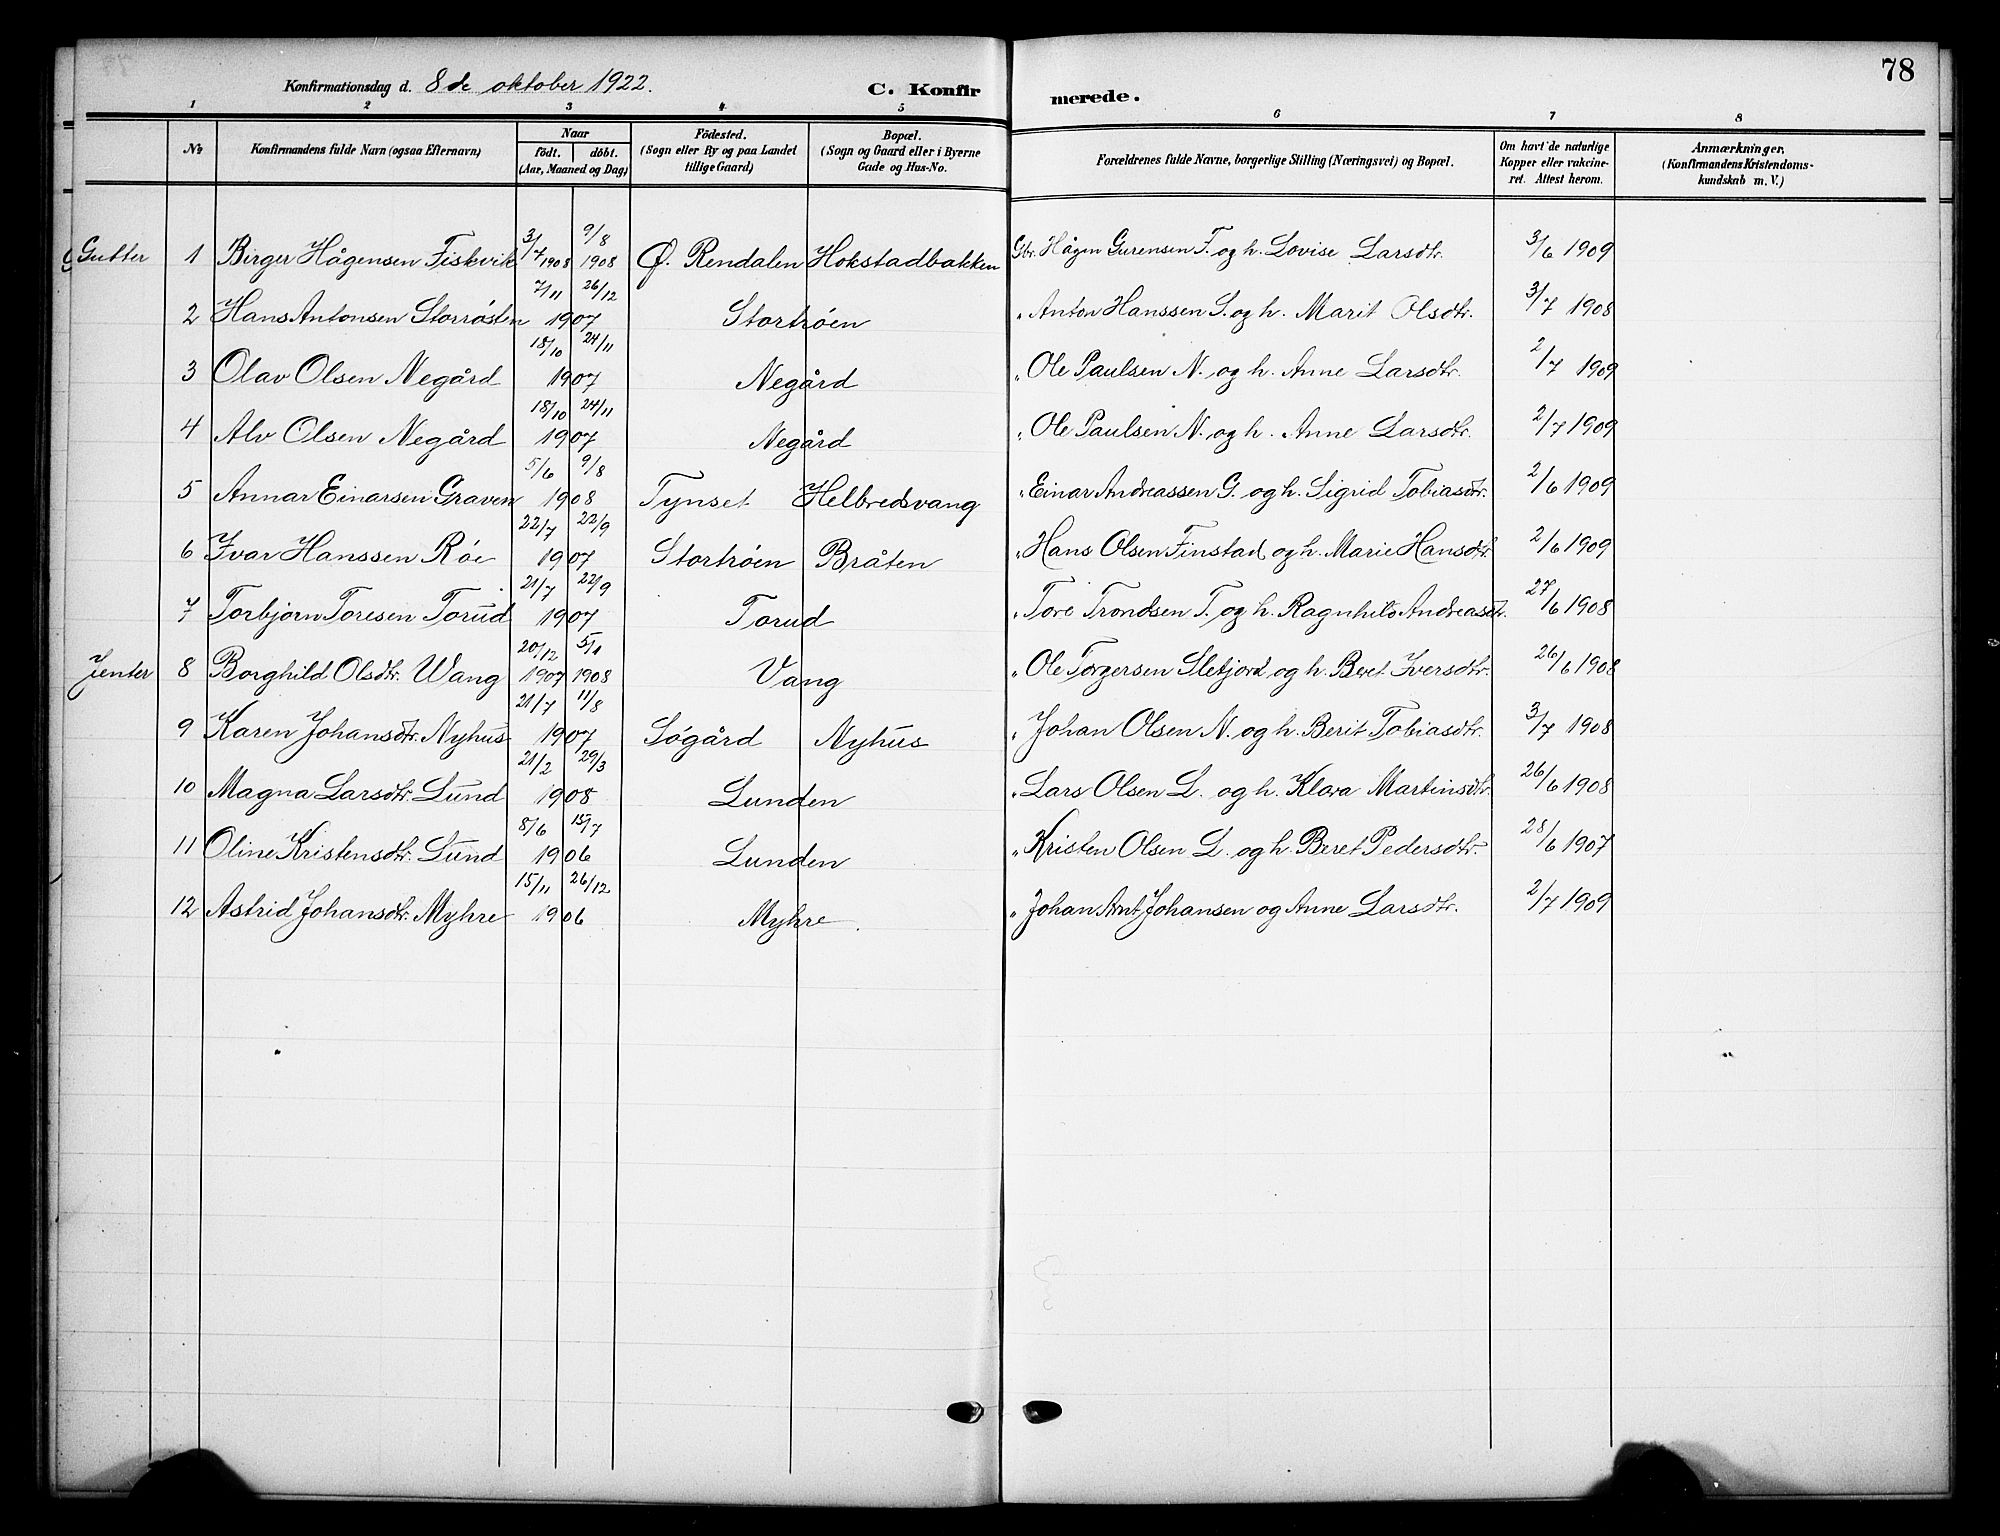 78
Konfirmationsdag d. 8de oktober 1922. C. Konfirmerede.
1 2 3 4 5 6 7 8
№ Konfirmandens fulde Navn (ogsaa Efternavn) Naar födt. döbt. (Aar, Maaned og Dag) Födested. (Sogn eller By og paa Landet tillige Gaard) Bopæl. (Sogn og Gaard eller i Byerne Gade og Hus-No. Forældrenes fulde Navne, borgerlige Stilling (Næringsvei) og Bopæl. Om havt de naturlige Kopper eller vakcineret. Attest herom. Anmærkninger. (Konfirmandens Kristendomskundskab m. V.)
Gutter 1 Birger Hågensen Fiskvik 3/7 1908 9/8 1908 Ø. Rendalen Hokstadbakken Gbr. Hågen Gurensen F. og h. Lovise Larsdtr. 3/6 1909
2 Hans Antonsen Storrøsten 7/11 26/12 1907 Stortrøen " Anton Hanssen S. og h. Marit Olsdtr. 3/7 1908
3 Olav Olsen Negård 18/10 24/11 1907 Negård " Ole Paulsen N. og h. Anne Larsdtr. 2/7 1909
4 Alv Olsen Negård 18/10 24/11 1907 Negård " Ole Paulsen N. og h. Anne Larsdtr. 2/7 1909
5 Annar Einarsen Graven 5/6 9/8 1908 Tynset Helbredsvang " Einar Andreassen G. og h. Sigrid Tobiasdtr. 2/6 1909
6 Ivar Hanssen Røe 22/7 22/9 1907 Stortrøen Bråten " Hans Olsen Finstad og h. Marie Hansdtr. 2/6 1909
7 Torbjørn Toresen Torud 21/7 22/9 1907 Torud " Tore Trondsen T. og h. Ragnhild Andreasdtr. 27/6 1908
Jenter 8 Borghild Olsdtr. Wang 20/12 1907 5/1 1908 Vang " Ole Torgersen Sletjord og h. Beret Iversdtr. 26/6 1908
9 Karen Johansdtr. Nyhus 21/7 11/8 1907 Søgård Nyhus " Johan Olsen N. og h. Berit Tobiasdtr. 3/7 1908
10 Magna Larsdtr. Lund 21/2 29/3 1908 Lunden " Lars Olsen L. og h. Klara Martinsdtr. 26/6 1908
11 Oline Kristensdtr. Lund 8/6 15/7 1906 Lunden " Kristen Olsen L. og h. Beret Pedersdtr. 28/6 1907
12 Astrid Johansdtr. Myhre 15/11 26/12 1906 Myhre. " Johan Arnt Johansen og Anne Larsdtr. 2/7 1909